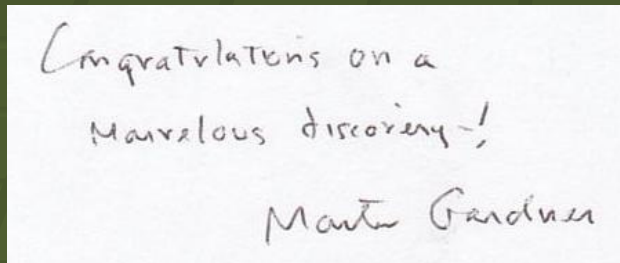 Congratulations on a
marvelous discovery!
Martin Gardner